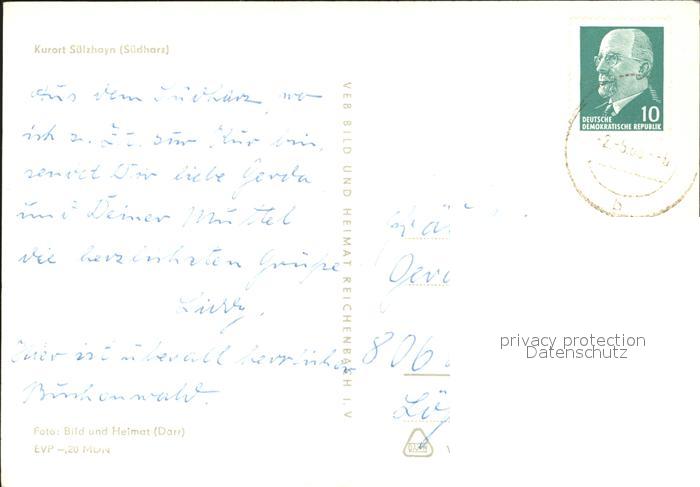 Kurort Sülzhayn (Südharz)
Aus dem Südharz, wo
ich z. Zt. zur Kur bin,
sendet Dir liebe Gerda
und Deiner Mutter
die herzlichsten Grüße
Hier ist überall herrlicher
Buchenwald.
Foto: Bild und Heimat (Darr)
EVP –,20 MDN
VEB BILD UND HEIMAT REICHENBACH I. V
DEUTSCHE
DEMOKRATISCHE REPUBLIK
10
806
privacy protection
Datenschutz